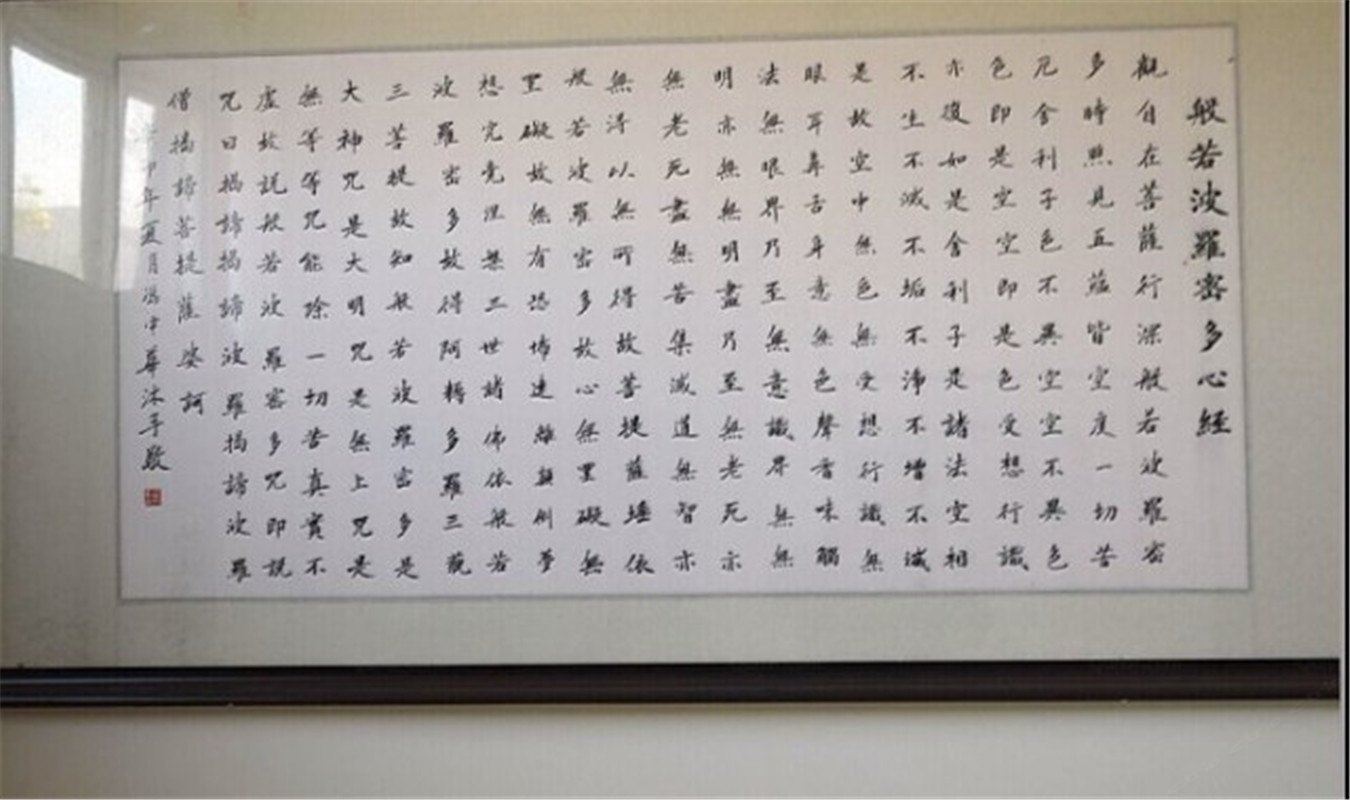 般若波羅密多心經
觀自在菩薩行深般若波羅密
多時照見五蕴皆空度一切苦
厄舍利子色不異空空不異色
色即是空空即是色受想行識
亦復如是舍利子是諸法空相
不生不滅不垢不淨不增不減
是故空中無色無受想行識無
眼耳鼻舌身意無色聲香味觸
法無眼界乃至無意識界無無
明亦無無明盡乃至無老死亦
無老死盡無苦集滅道無智亦
無得以無所得故菩提薩埵依
般若波羅密多故心無罣礙無
罣礙故無有恐怖遠離顛倒夢
想究竟涅槃三世諸佛依般若
波羅密多故得阿耨多羅三藐
三菩提故知般若波羅密多是
大神咒是大明咒是無上咒是
無等等咒能除一切苦真實不
虛故説般若波羅密多咒即説
咒曰揭諦揭諦波羅揭諦波羅
僧揭諦菩提薩婆訶
卯年夏月馮中華沐手敬